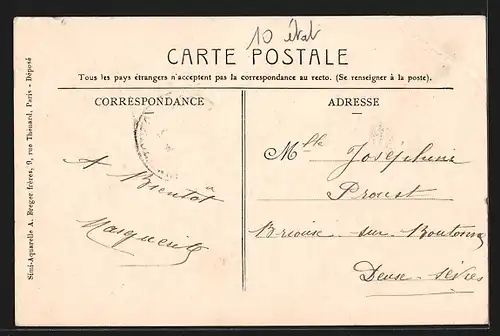 10 état
CARTE POSTALE
Tous les pays étrangers n'acceptent pas la correspondance au recto. (Se renseigner à la poste).
CORRESPONDANCE
ADRESSE
Simi-Aquarelle A. Breger frères, 9, rue Thénard, Paris - Déposé
A Bientôt
Marguerite
Mlle Joséphine
Proust
Brioux-sur-Boutonne
Deux-Sèvres